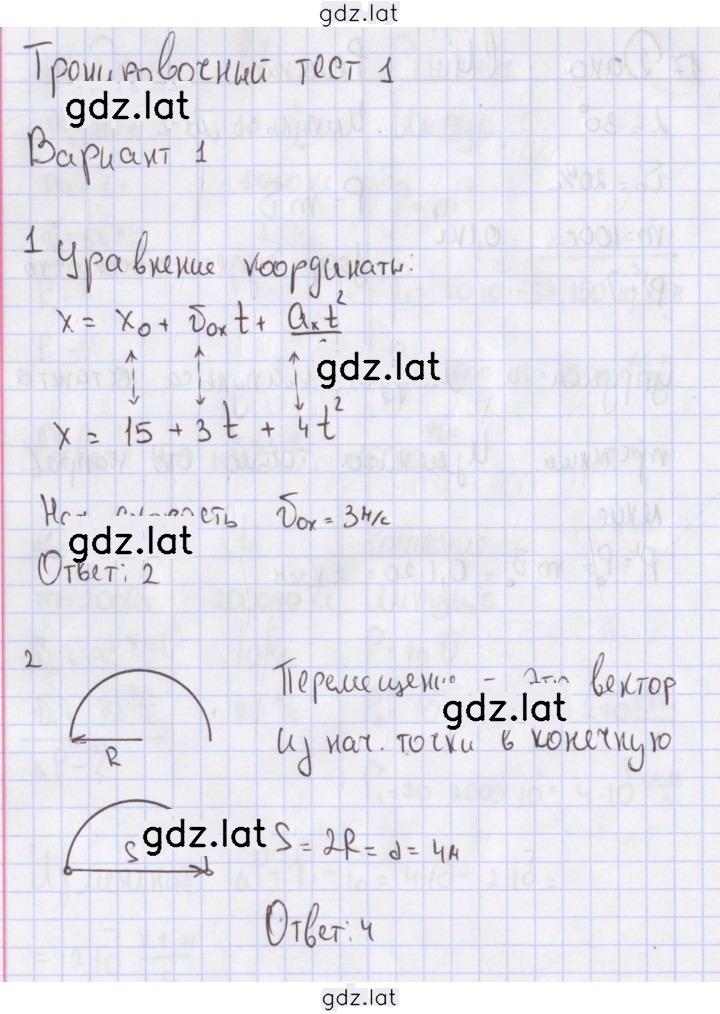 gdz.lat
Тренировочный тест 1
gdz.lat
Вариант 1
1 Уравнение координаты:
x = x₀ + υ₀ₓt + aₓt²
gdz.lat
x = 15 + 3t + 4t²
υ₀ₓ = 3 м/с
gdz.lat
Ответ: 2
2
Перемещение - это вектор
gdz.lat
из нач. точки в конечную
R
gdz.lat
S
S = 2R = d = 4м
Ответ: 4
gdz.lat